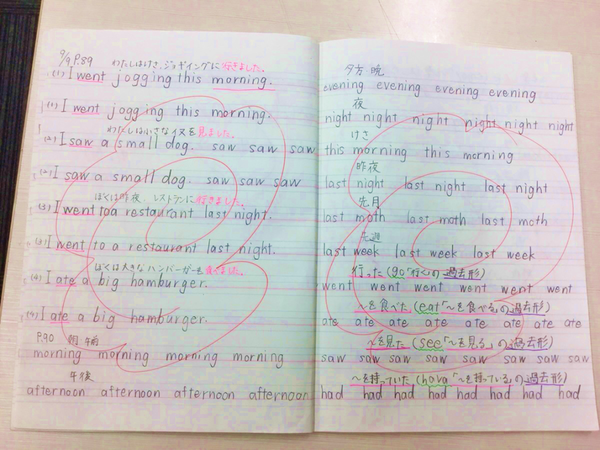 9/9 P.89 わたしはけさ、ジョギングに行きました。
(1) I went jogging this morning.
(1) I went jogging this morning.
わたしは小さなイヌを見ました。
(2) I saw a small dog. saw saw saw
(2) I saw a small dog. saw saw saw
ぼくは昨夜、レストランに行きました。
(3) I went to a restaurant last night.
(3) I went to a restaurant last night.
ぼくは大きなハンバーガーを食べました。
(4) I ate a big hamburger.
(4) I ate a big hamburger.
P.90 朝 午前
morning morning morning morning
午後
afternoon afternoon afternoon afternoon
夕方・晩
evening evening evening evening
夜
night night night night night night
けさ
this morning this morning
昨夜
last night last night last night
先月
last moth last moth last moth
先週
last week last week last week
行った(go「行く」の過去形)
went went went went went went
〜を食べた(eat「〜を食べる」の過去形)
ate ate ate ate ate ate ate
〜を見た(see「〜を見る」の過去形)
saw saw saw saw saw saw saw
〜を持っていた(have「〜を持っている」の過去形)
had had had had had had had had